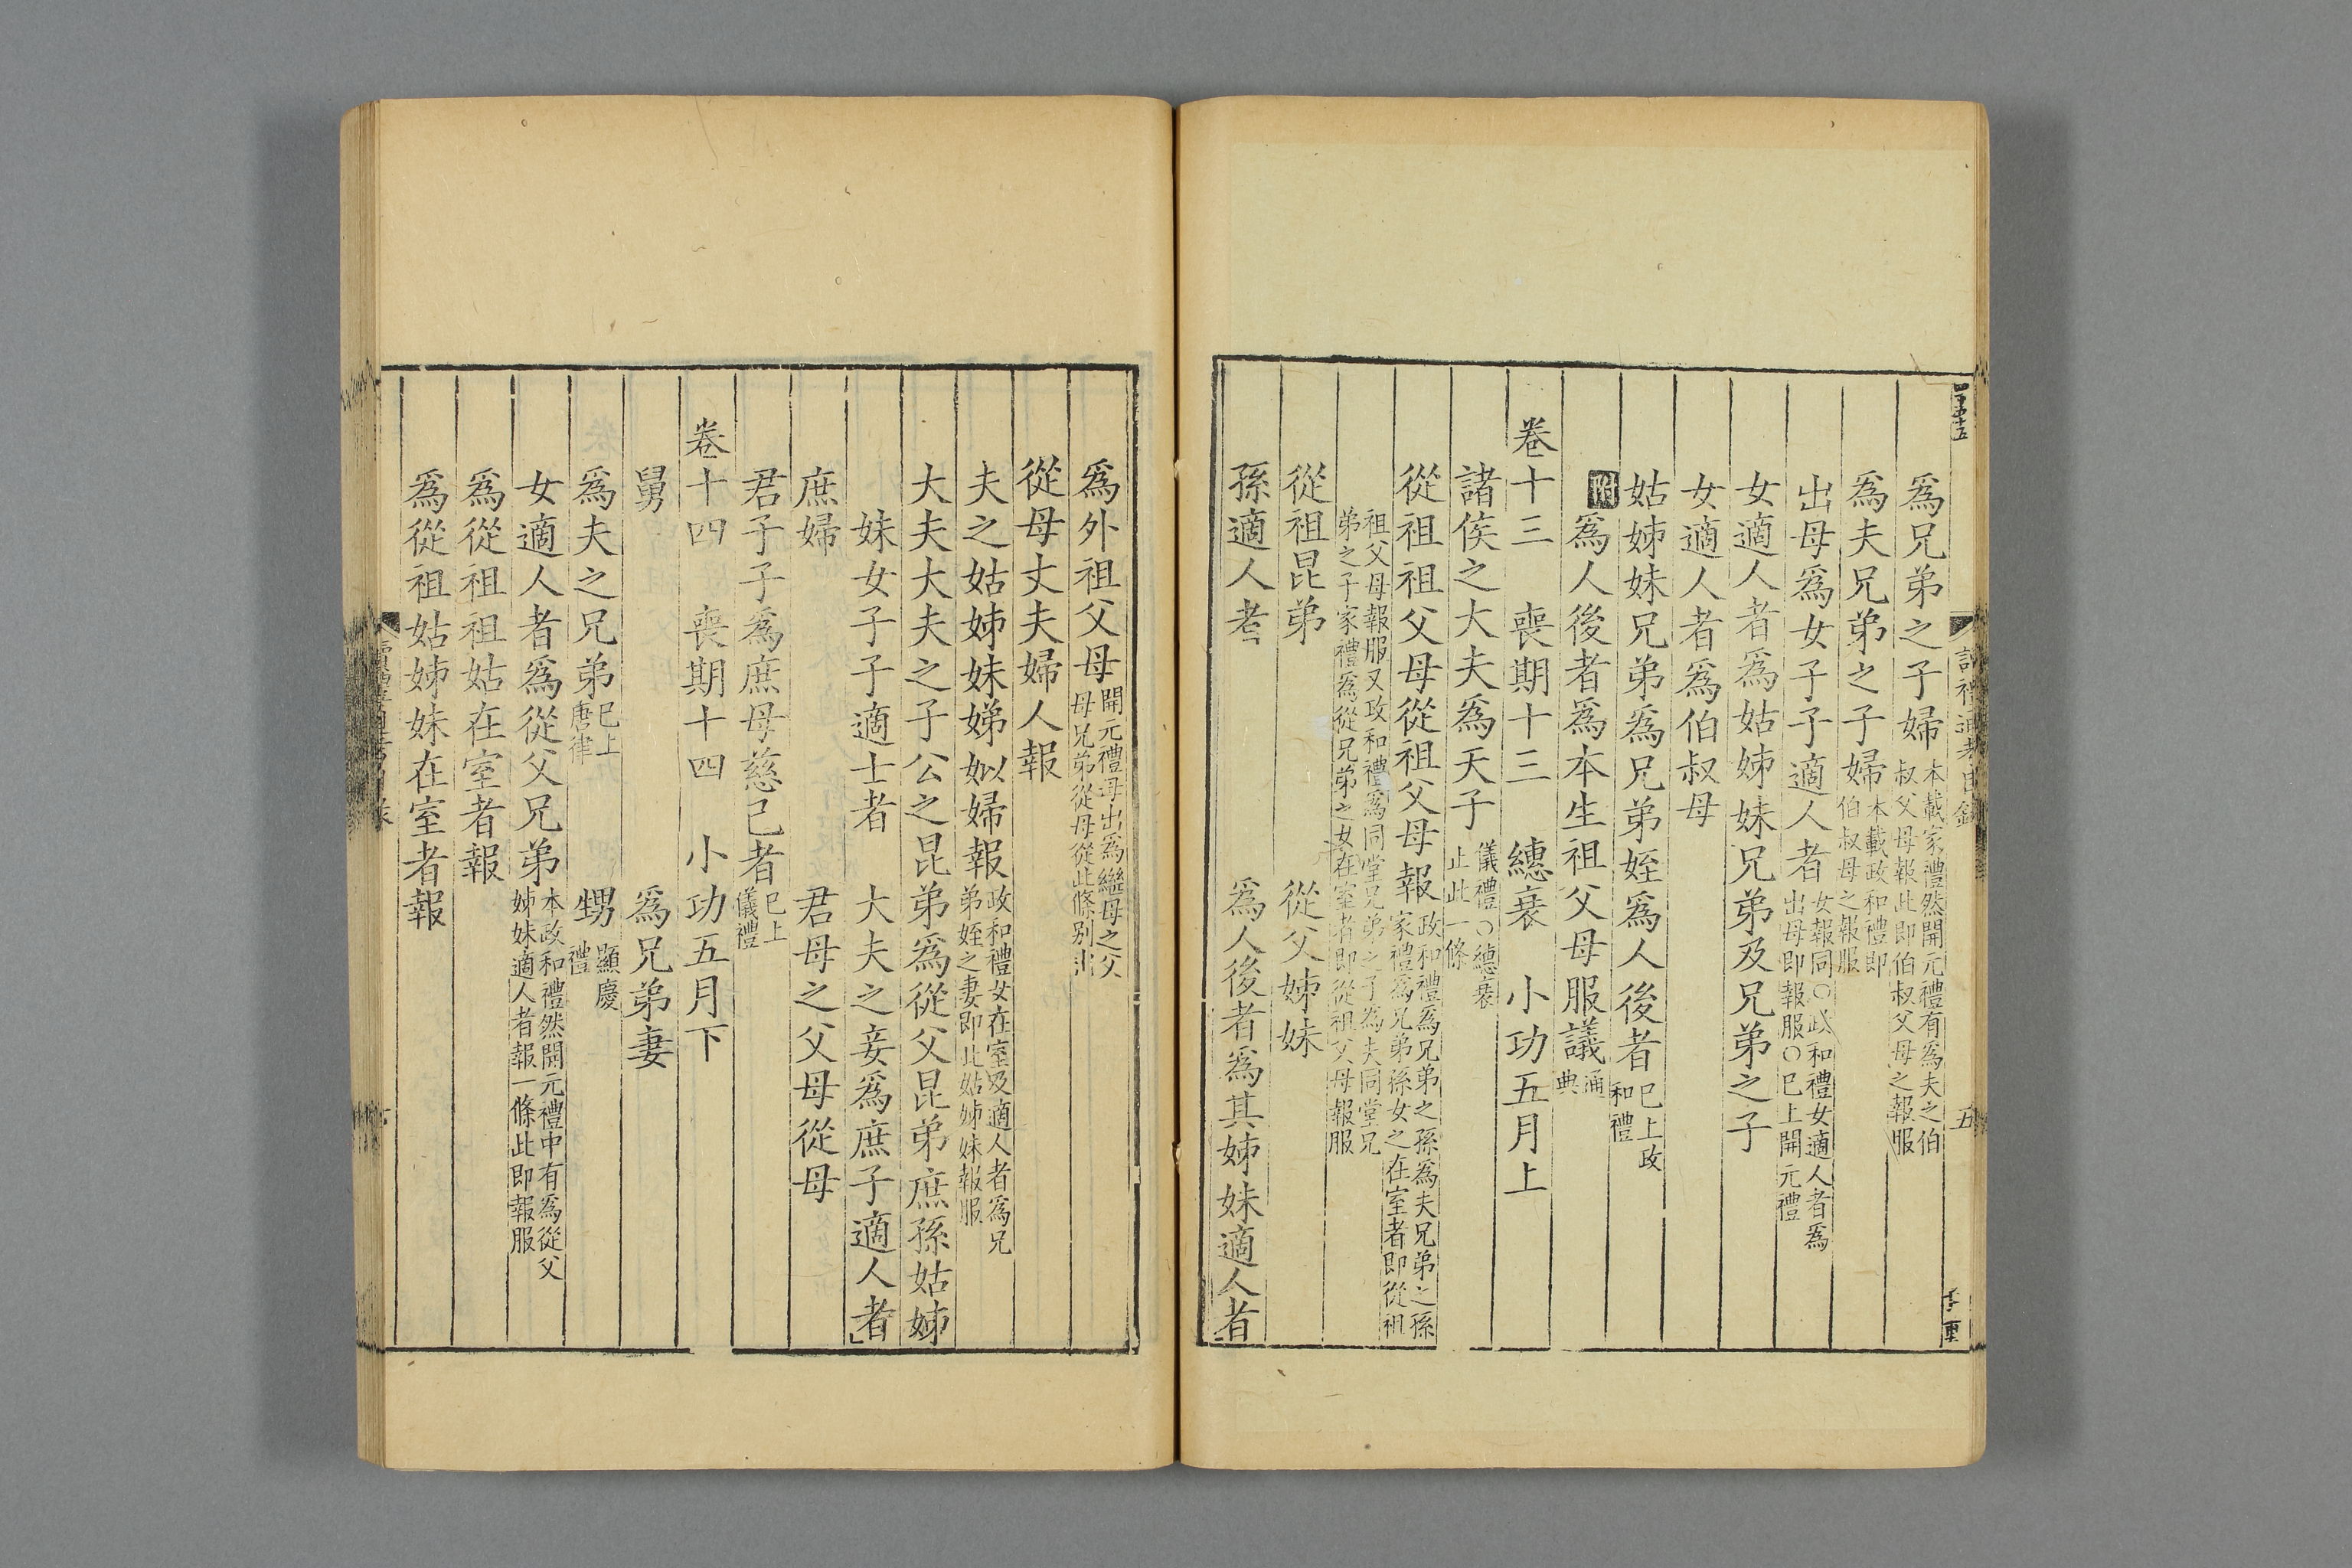 讀禮通考目錄 五
爲兄弟之子婦 本載家禮然開元禮有爲夫之伯叔父母報此即伯叔父母之報服
爲夫兄弟之子婦 本載政和禮即伯叔母之報服
出母爲女子子適人者 女報同○政和禮女適人者爲出母即報服○已上開元禮
女適人者爲姑姊妹兄弟及兄弟之子
女適人者爲伯叔母
姑姊妹兄弟爲兄弟姪爲人後者 已上政和禮
附 爲人後者爲本生祖父母服議 通典
卷十三 喪期十三 繐衰 小功五月上
諸侯之大夫爲天子 儀禮○繐衰止此一條
從祖祖父母從祖父母報 政和禮爲兄弟之孫爲夫兄弟之孫家禮爲兄弟孫女之在室者即從祖
祖父母報服又政和禮爲同堂兄弟之子爲夫同堂兄弟之子家禮爲從兄弟之女在室者即從祖父母報服
從祖昆弟 從父姊妹
孫適人者 爲人後者爲其姊妹適人者
爲外祖父母 開元禮母出爲繼母之父母兄弟從母從此條别出
從母丈夫婦人報
夫之姑姊妹娣姒婦報 政和禮女在室及適人者爲兄弟姪之妻即此姑姊妹報服
大夫大夫之子公之昆弟爲從父昆弟庶孫姑姊
妹女子子適士者 大夫之妾爲庶子適人者
庶婦 君母之父母從母
君子子爲庶母慈己者 已上儀禮
卷十四 喪期十四 小功五月下
舅 爲兄弟妻
爲夫之兄弟 已上唐律 甥 顯慶禮
女適人者爲從父兄弟 本政和禮然開元禮中有爲從父姊妹適人者報一條此即報服
爲從祖祖姑在室者報
爲從祖姑姊妹在室者報